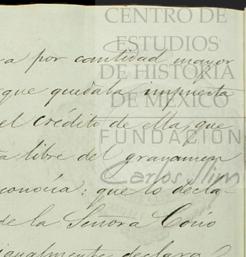 CENTRO DE
ESTUDIOS
DE HISTORIA
DE MÉXICO
FUNDACIÓN
Carlos Slim
a por cantidad mayor
que quedaba impuesta
el crédito de ella; que
libre del gravamen
conocía; que lo decla-
de la Señora
igualmente declara